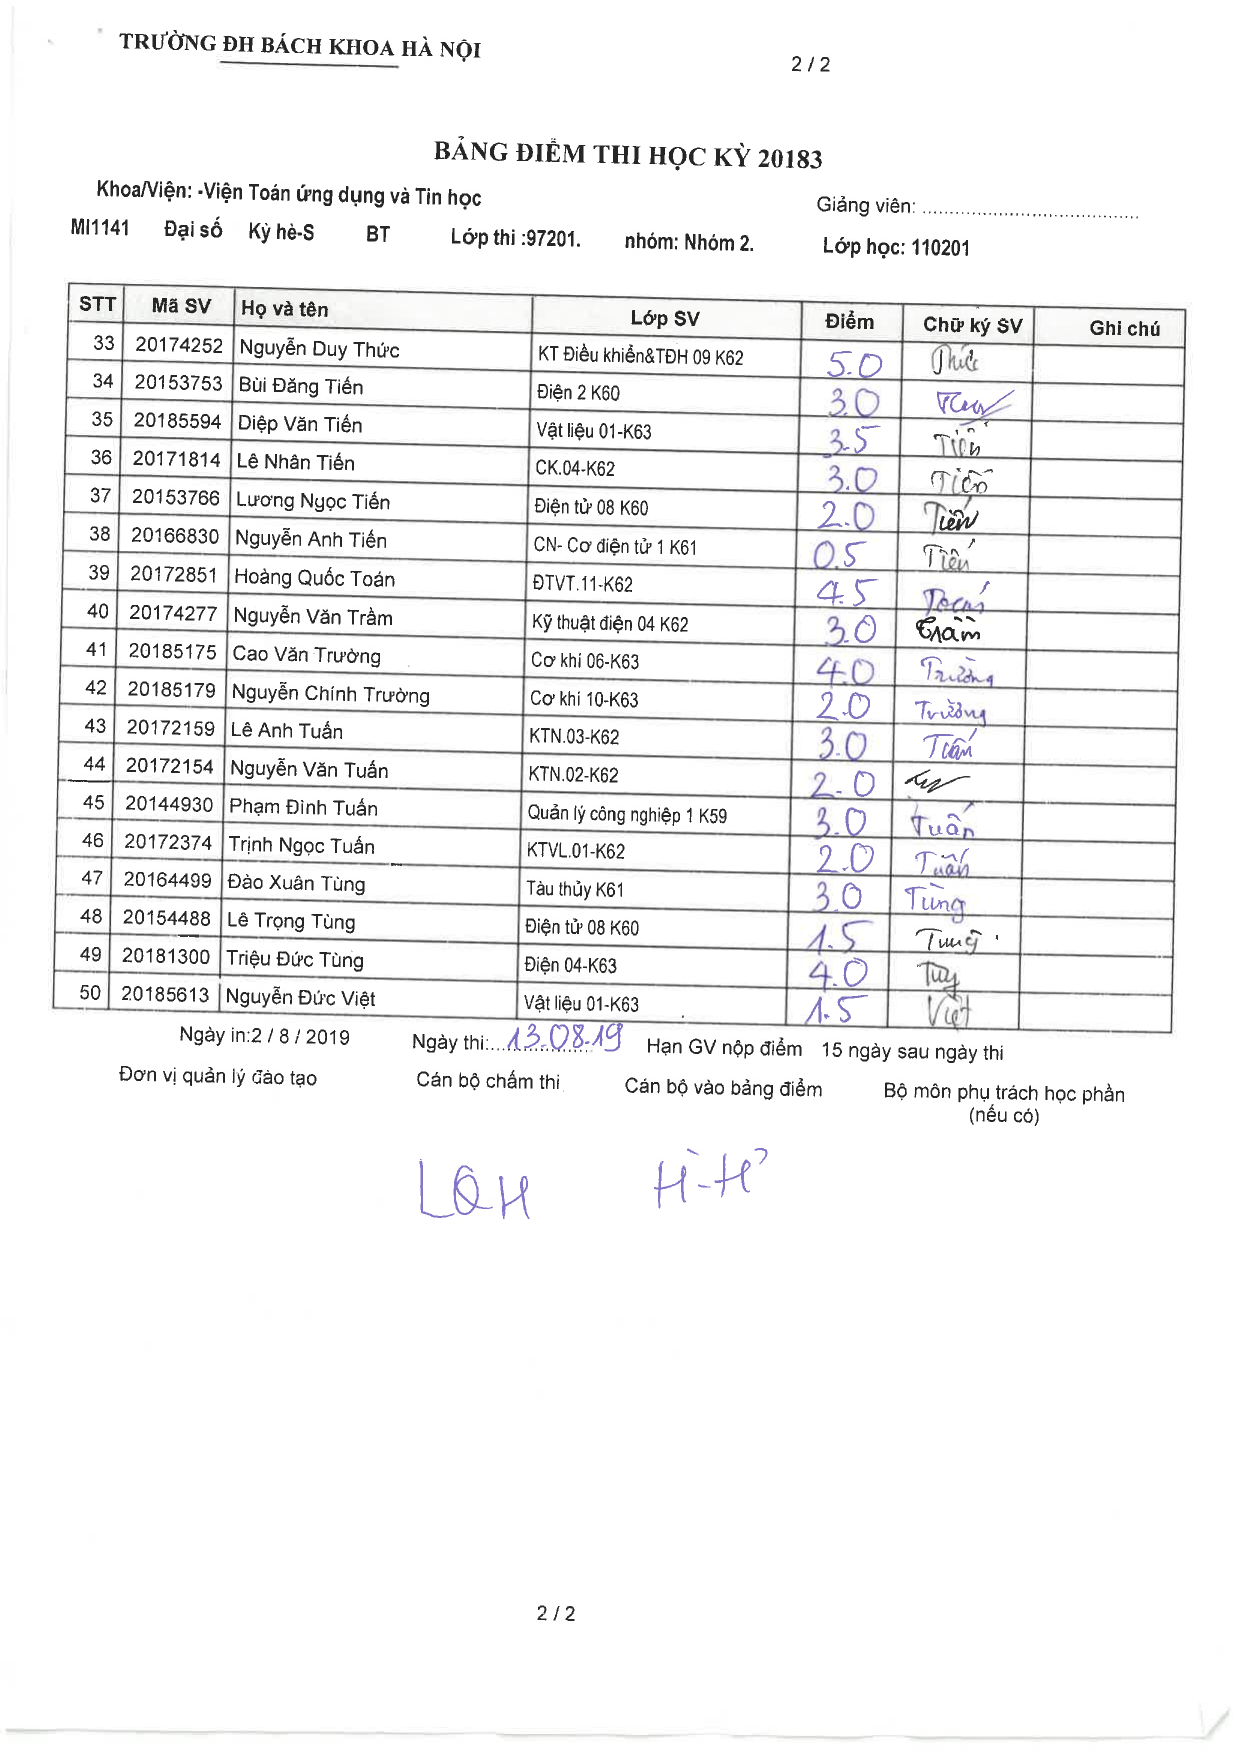 TRƯỜNG ĐH BÁCH KHOA HÀ NỘI
2 / 2
BẢNG ĐIỂM THI HỌC KỲ 20183
Khoa/Viện: -Viện Toán ứng dụng và Tin học Giảng viên: ........................................
MI1141 Đại số Kỳ hè-S BT Lớp thi :97201. nhóm: Nhóm 2. Lớp học: 110201
STT Mã SV Họ và tên Lớp SV Điểm Chữ ký SV Ghi chú
33 20174252 Nguyễn Duy Thức KT Điều khiển&TĐH 09 K62 5.0 Thức
34 20153753 Bùi Đăng Tiến Điện 2 K60 3.0
35 20185594 Diệp Văn Tiến Vật liệu 01-K63 3.5 Tiến
36 20171814 Lê Nhân Tiến CK.04-K62 3.0 Tiến
37 20153766 Lương Ngọc Tiến Điện tử 08 K60 2.0 Tiến
38 20166830 Nguyễn Anh Tiến CN- Cơ điện tử 1 K61 0.5 Tiến
39 20172851 Hoàng Quốc Toán ĐTVT.11-K62 4.5 Toán
40 20174277 Nguyễn Văn Trầm Kỹ thuật điện 04 K62 3.0 Trầm
41 20185175 Cao Văn Trường Cơ khí 06-K63 4.0 Trường
42 20185179 Nguyễn Chính Trường Cơ khí 10-K63 2.0 Trường
43 20172159 Lê Anh Tuấn KTN.03-K62 3.0 Tuấn
44 20172154 Nguyễn Văn Tuấn KTN.02-K62 2.0
45 20144930 Phạm Đình Tuấn Quản lý công nghiệp 1 K59 3.0 Tuấn
46 20172374 Trịnh Ngọc Tuấn KTVL.01-K62 2.0 Tuấn
47 20164499 Đào Xuân Tùng Tàu thủy K61 3.0 Tùng
48 20154488 Lê Trọng Tùng Điện tử 08 K60 1.5 Tùng
49 20181300 Triệu Đức Tùng Điện 04-K63 4.0
50 20185613 Nguyễn Đức Việt Vật liệu 01-K63 1.5 Việt
Ngày in:2 / 8 / 2019 Ngày thi:...13.08.19 Hạn GV nộp điểm 15 ngày sau ngày thi
Đơn vị quản lý đào tạo Cán bộ chấm thi Cán bộ vào bảng điểm Bộ môn phụ trách học phần
(nếu có)
LQH
2 / 2